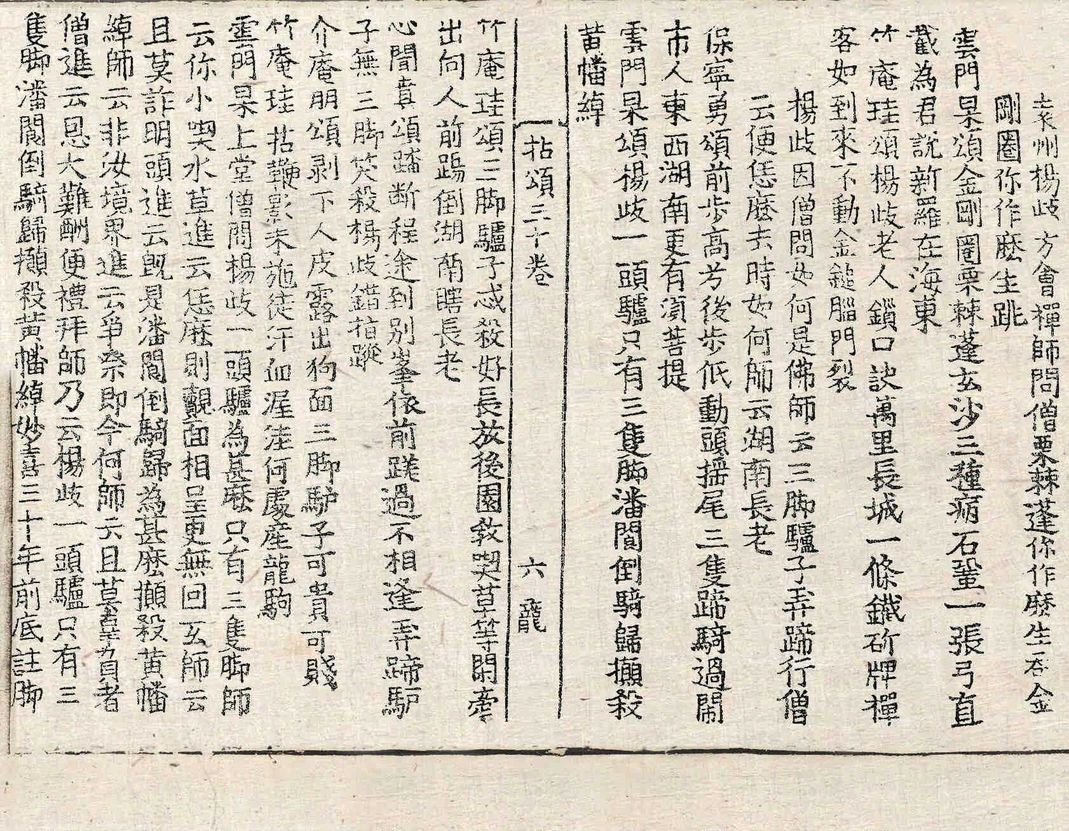 袁州楊歧方會禪師問僧栗棘蓬你作麽生吞金
剛圈你作麽生跳
雲門杲頌金剛圈栗棘蓬玄沙三種病石鞏一張弓直
截為君說新羅在海東
竹庵珪頌楊歧老人鎖口訣萬里長城一條鐵斫牌禪
客如到來不動金鎚腦門裂
楊歧因僧問如何是佛師云三脚驢子弄蹄行僧
云便恁麽去時如何師云湖南長老
保寧勇頌前步高兮後步低動頭搖尾三隻蹄騎過鬧
市人東西湖南更有須菩提
雲門杲頌楊歧一頭驢只有三隻脚潘閬倒騎歸攧殺
黄幡綽
拈頌三十卷 六 龍
竹庵珪頌三脚驢子忒殺好長放後園教喫草等閑牽
出向人前踢倒湖南瞎長老
心聞賁頌踏斷程途到別峯依前蹉過不相逢弄蹄馿
子無三脚笑殺楊歧錯指蹤
介庵朋頌剥下人皮露出狗面三脚馿子可貴可賤
竹庵珪拈鞭影未施徒汗血渥洼何處産龍駒
雲門杲上堂僧問楊歧一頭驢為甚麽只有三隻脚師
云你小喫水草進云恁麽則覿面相呈更無回互師云
且莫詐明頭進云旣是潘閬倒騎歸為甚麽攧殺黄幡
綽師云非汝境界進云爭奈即今何師云且莫辜負者
僧進云恩大難酬便禮拜師乃云楊歧一頭驢只有三
隻脚潘閬倒騎歸攧殺黄幡綽妙喜三十年前底註脚